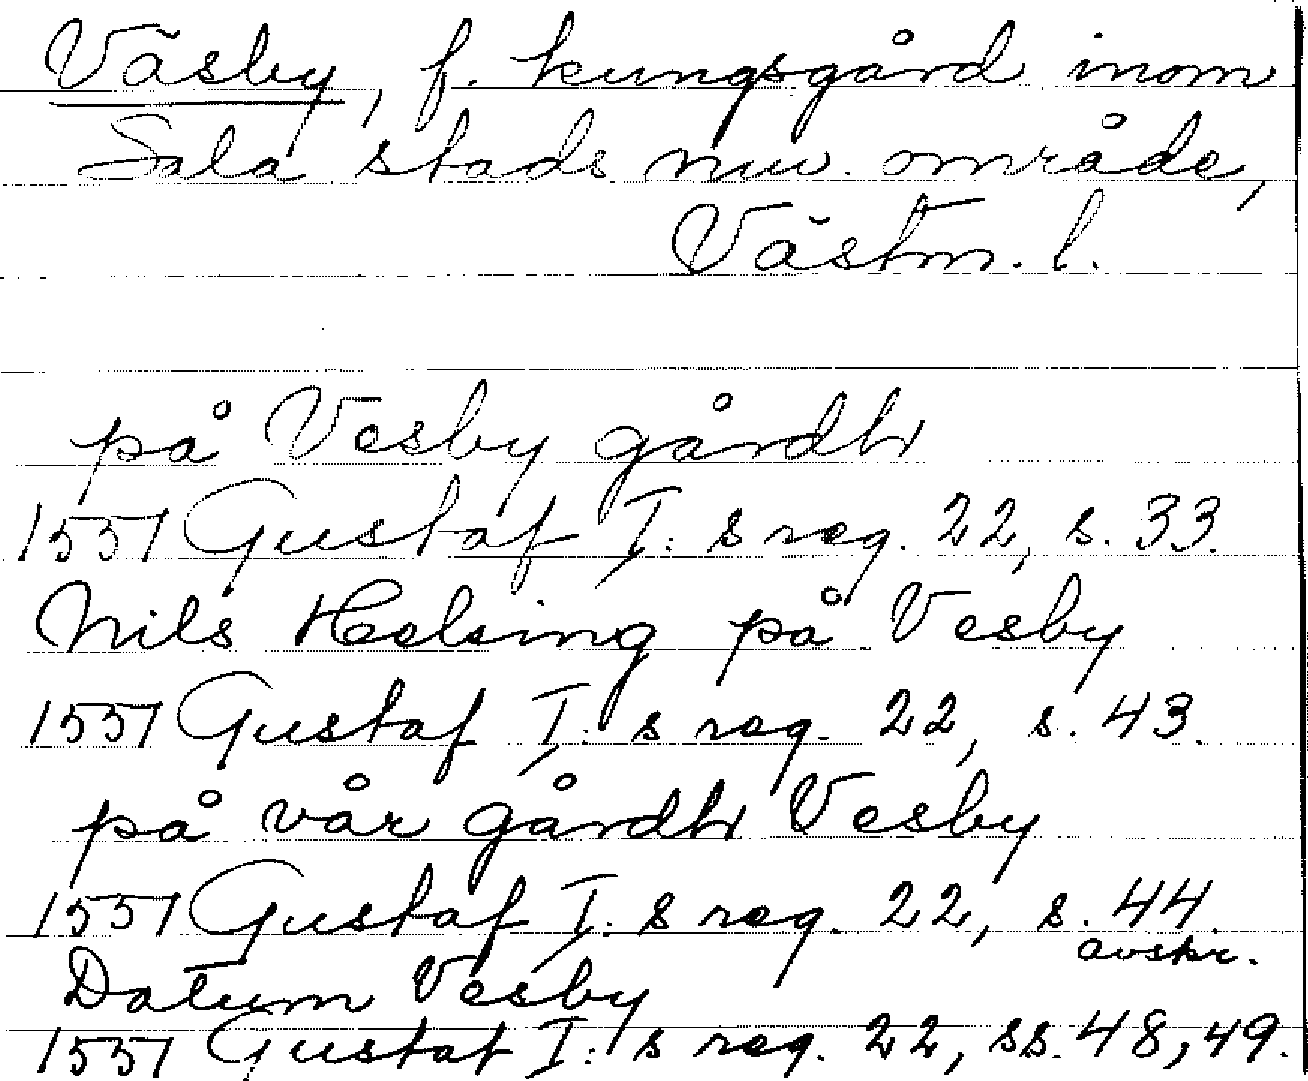 Väsby, f. kungsgård inom
Sala stads nuv. område,
Västm. l.
på Vesby gårdh
1551 Gustaf I:s reg. 22, s. 33.
Nils Helsing på Vesby
1551 Gustaf I:s reg. 22, s. 43.
på vår gårdh Vesby
1551 Gustaf I:s reg. 22, s. 44.
avskr.
Datum Vesby
1551 Gustaf I:s reg. 22, ss. 48, 49.